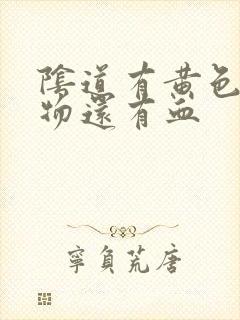 陰道有黃色
物還有血
寧負荒唐